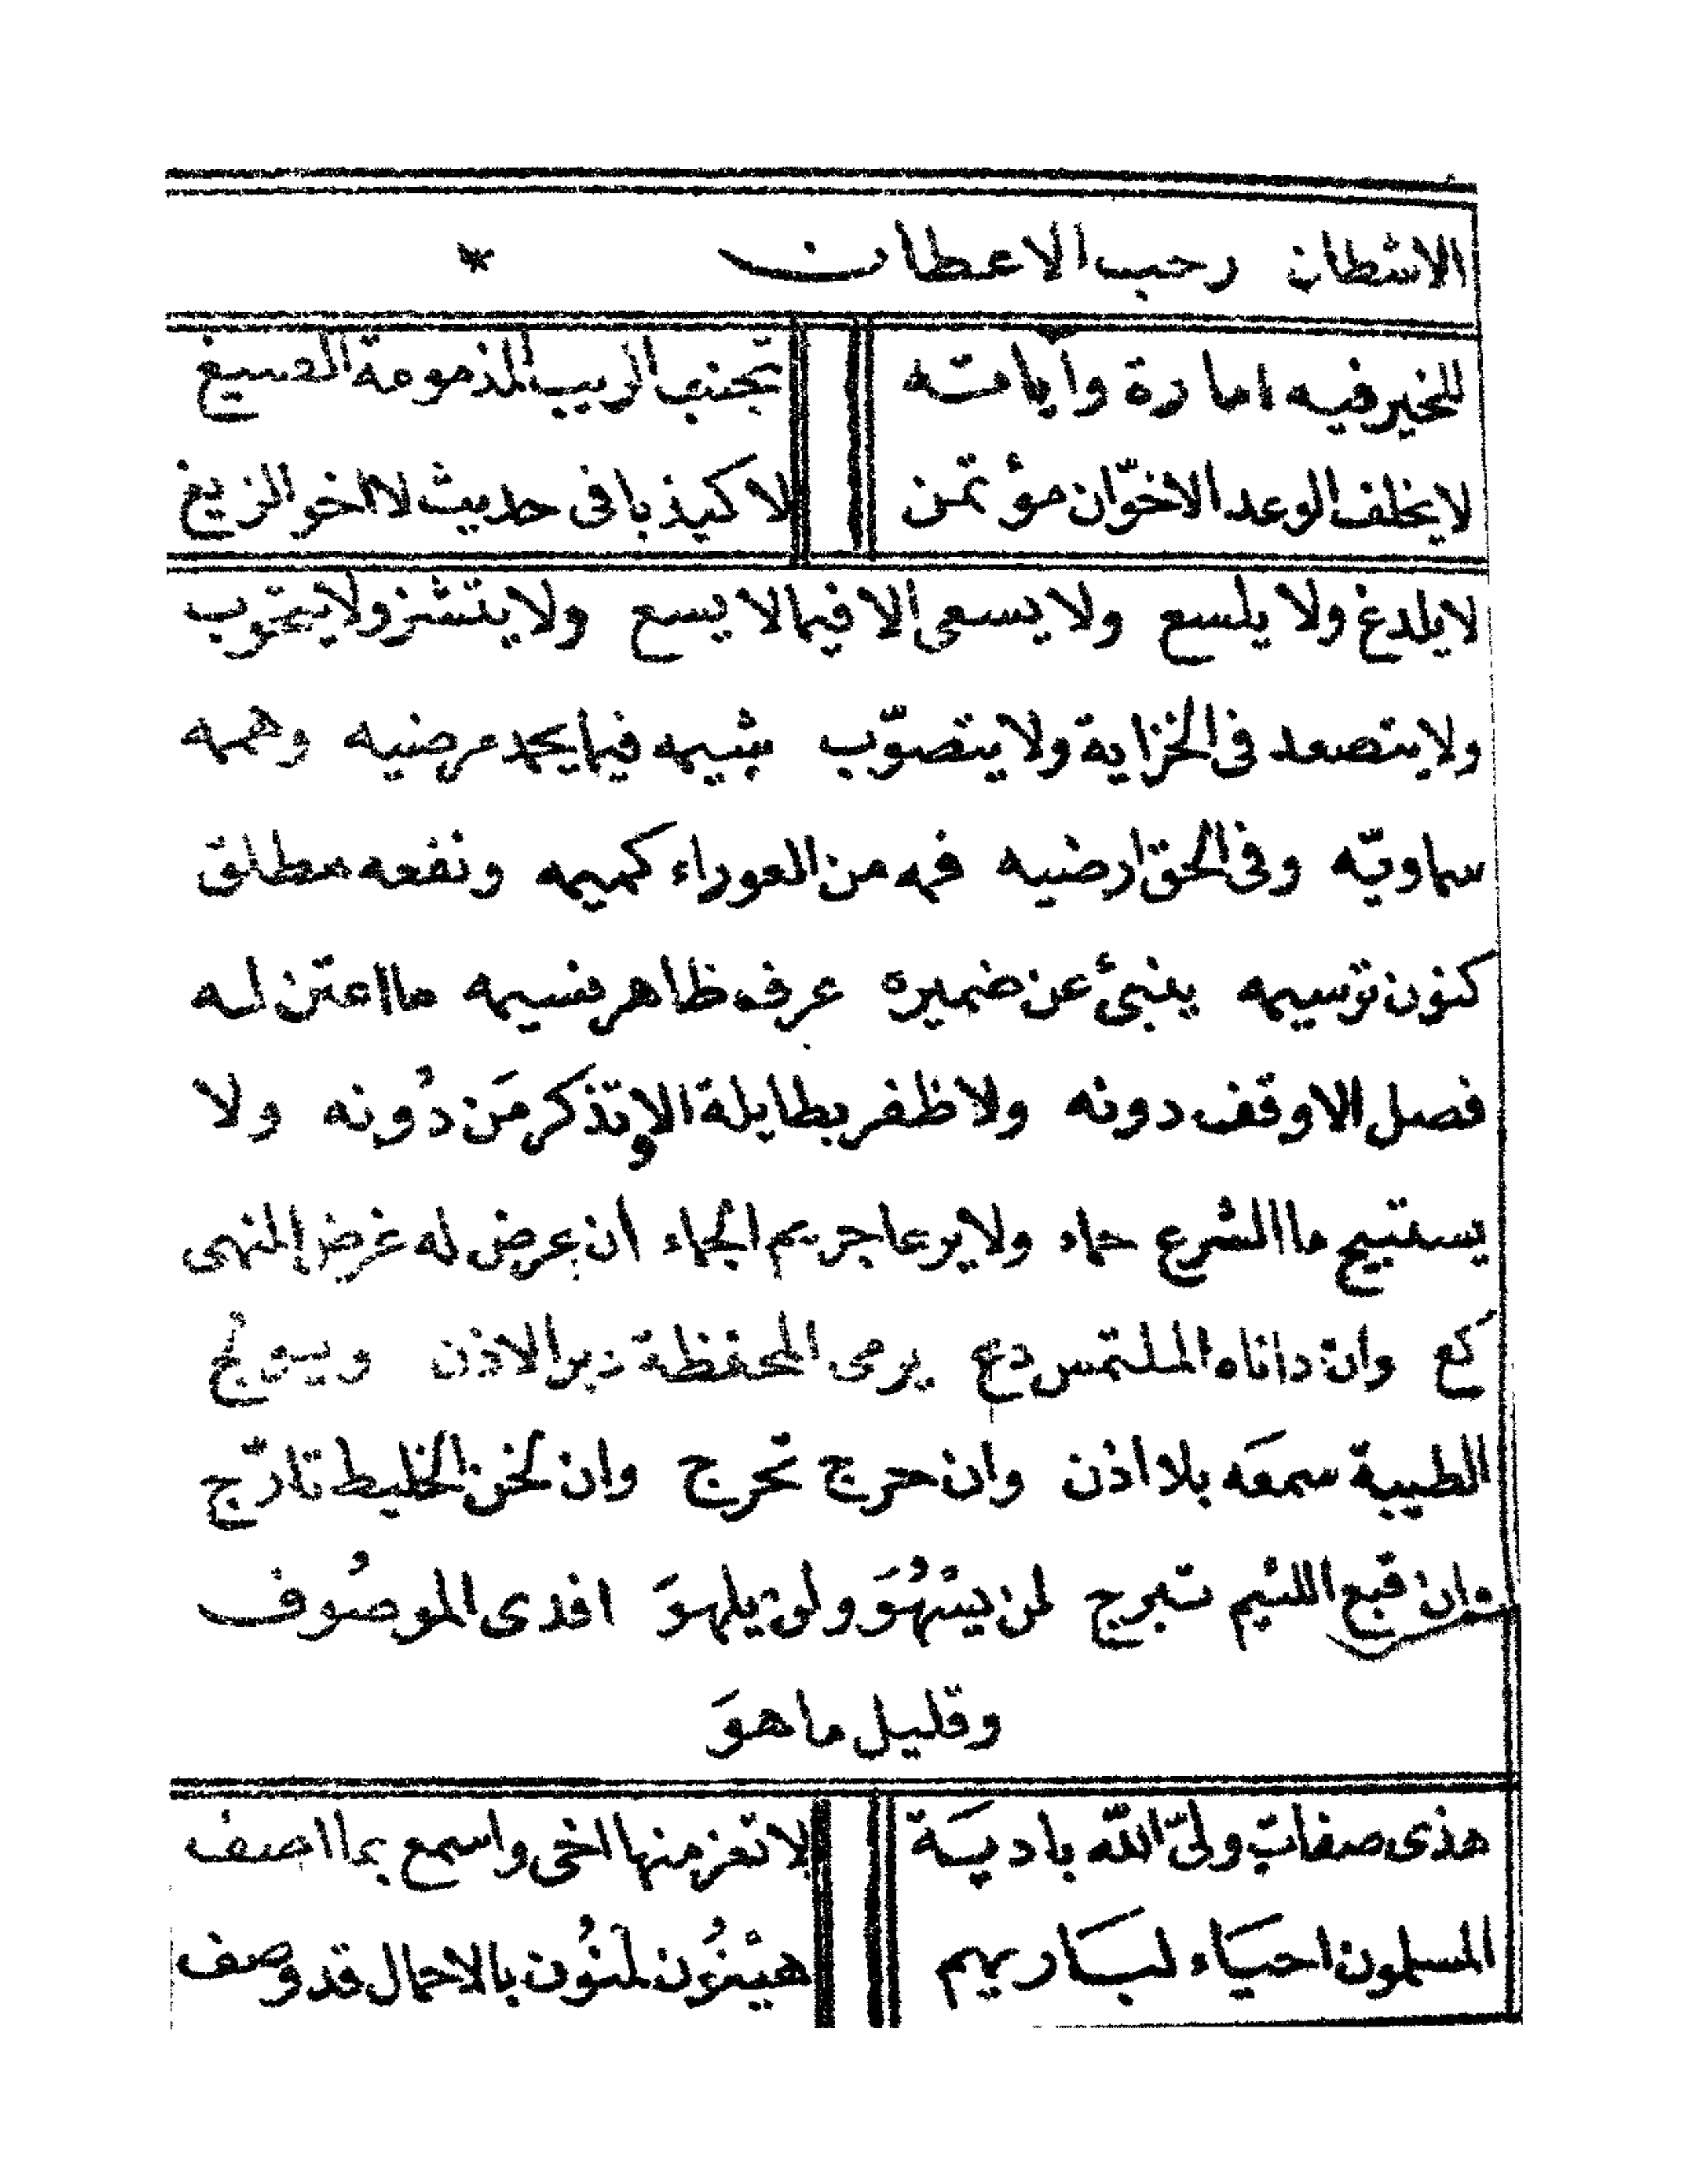 الاشطان رحب الاعطان *
للخير فيه امارة وأيامته تجنب الريب المذمومة الصيغ
لا يخلف الوعد الاخوّان مؤتمن لا كيذبا فى حديث لا اخو الزيغ
لا يلدغ ولا يلسع ولا يسعى الا فيما لا يسع ولا يتشنز ولا يتحوب
ولا يتصعد فى الخزاية ولا يتصوّب شيمه فيما يحمد مرضيه وهممه
سماويّه وفى الحق ارضيه فمه من العوراء كميمه ونفعه مطلق
كنون توسيمه ينبئ عن ضميره عرف ظاهر نسيمه ما اعتن له
فصل الا وقف دونه ولا ظفر بطايلة الا وتذكر مَن دُونه ولا
يستبيح ما الشرع حماه ولا يرعا جريم الجماء أن عرض له غرض المنهى
كع وان داناه الملتمس دع يرمى المحفظة دبر الاذن ويسولج
الطيبة سمعَه بلا اذن وان حرج تحرج وان لخن الخليط تارّج
وان قبع اللئيم تبرج لمن يسْهُوَ ولن يلهوَ افدى الموصُوف
وقليل ما هوَ
هذى صفات ولىّ اللّه باديَة لا تعز منها اخى واسمع بما اصف
المسلمون احيَاء لبَاريهم هيْنُون لمنُون بالاحمال قد وصف